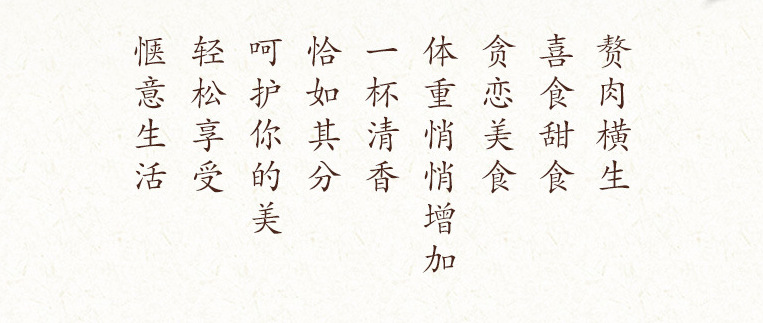 赘肉横生
喜食甜食
贪恋美食
体重悄悄增加
一杯清香
恰如其分
呵护你的美
轻松享受
惬意生活